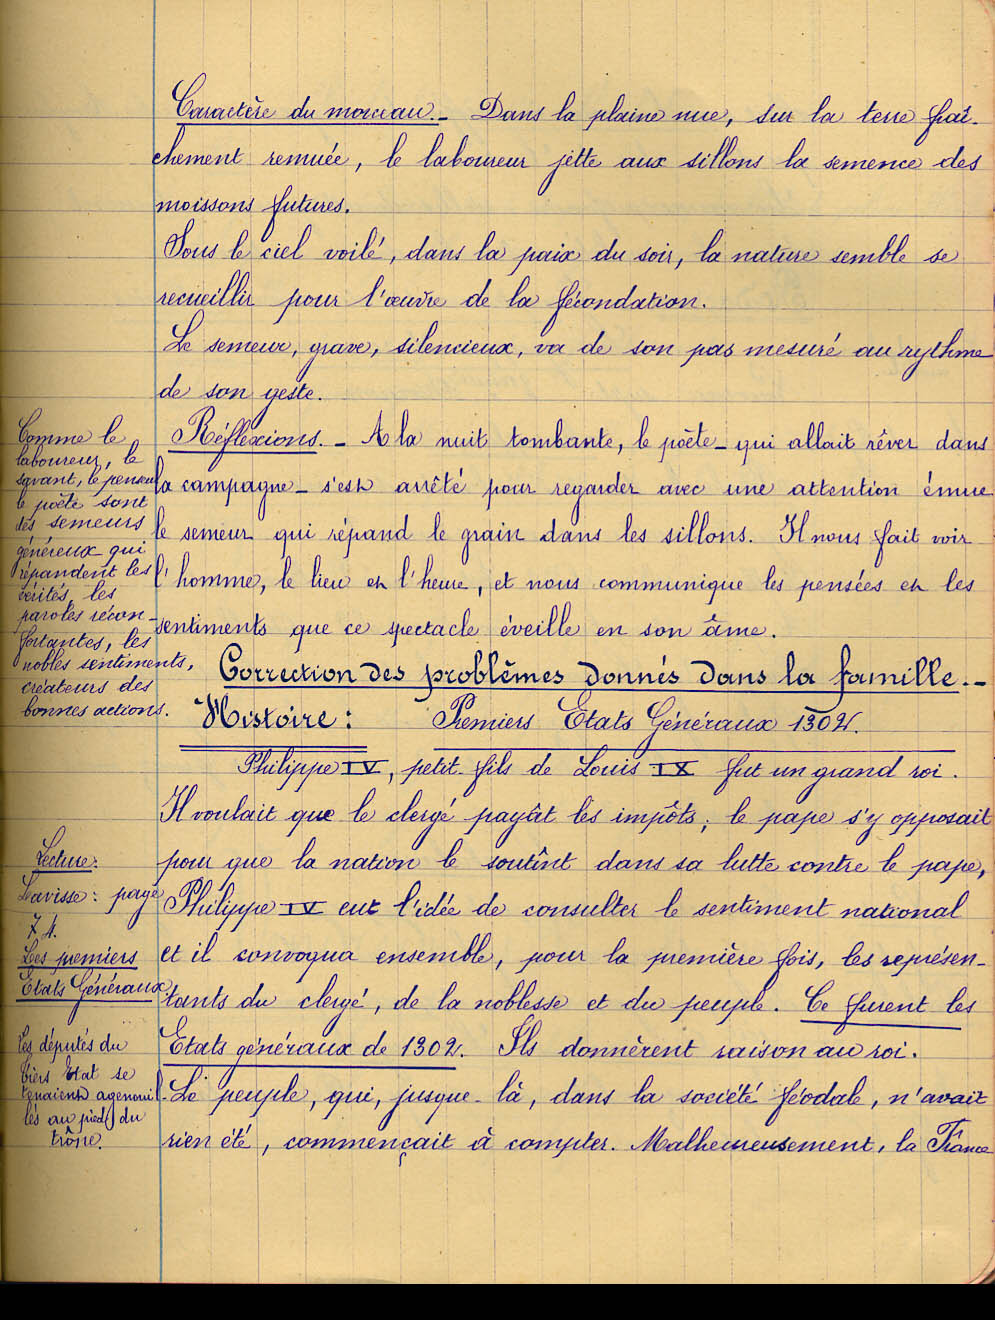 Caractère du morceau._ Dans la plaine nue, sur la terre fraî-
chement remuée, le laboureur jette aux sillons la semence des
moissons futures.
Sous le ciel voilé, dans la paix du soir, la nature semble se
recueillir pour l'œuvre de la fécondation.
Le semeur, grave, silencieux, va de son pas mesuré au rythme
de son geste.
Comme le
laboureur, le
savant, le penseur
le poète sont
des semeurs
généreux qui
répandent les
vérités, les
paroles récon-
fortantes, les
nobles sentiments,
créateurs des
bonnes actions.
Réflexions._ A la nuit tombante, le poète_ qui allait rêver dans
la campagne_ s'est arrêté pour regarder avec une attention émue
le semeur qui répand le grain dans les sillons. Il nous fait voir
l'homme, le lieu et l'heure, et nous communique les pensées et les
sentiments que ce spectacle éveille en son âme.
Correction des problèmes donnés dans la famille._
Histoire : Premiers Etats Généraux 1302.
Philippe IV, petit-fils de Louis IX fut un grand roi.
Il voulait que le clergé payât les impôts ; le pape s'y opposait
pour que la nation le soutînt dans sa lutte contre le pape,
Philippe IV eut l'idée de consulter le sentiment national
et il convoqua ensemble, pour la première fois, les représen-
tants du clergé, de la noblesse et du peuple. Ce furent les
Etats généraux de 1302. Ils donnèrent raison au roi.
Le peuple, qui, jusque-là, dans la société féodale, n'avait
rien été, commençait à compter. Malheureusement, la France
Lecture:
Lavisse : page
74.
Les premiers
Etats Généraux
Les députés du
tiers Etat se
tenaient agenouil-
lés au pied du
trône.